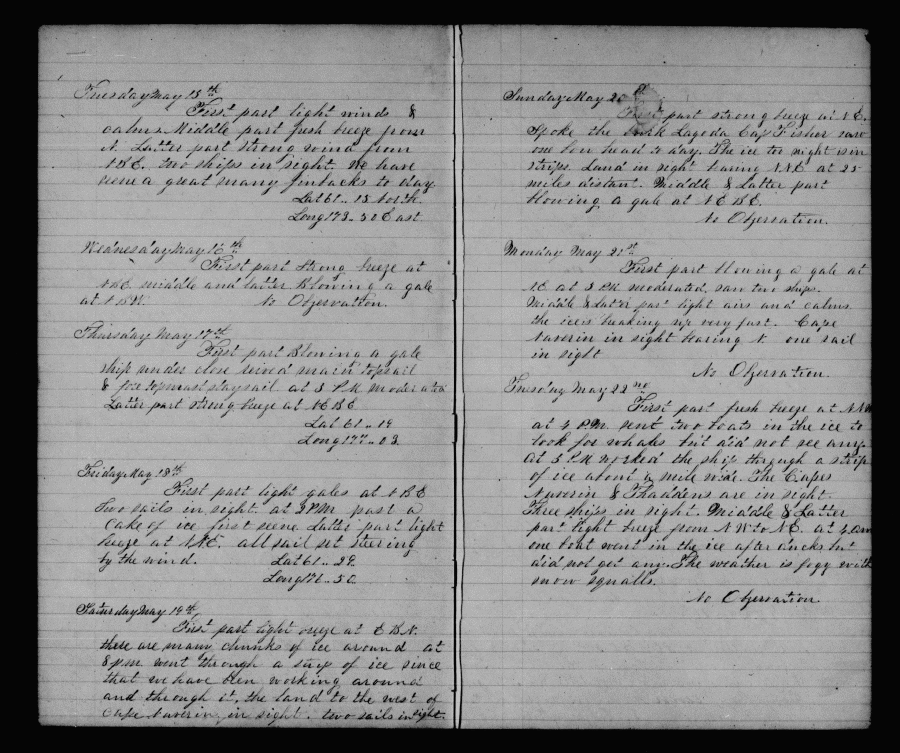 Tuesday May 15th
First part light winds &
calms. Middle part fresh breeze from
N. Latter part strong wind from
N.B.E. two ships in sight. We have
seen a great many finbacks to day
Lat 61.. 15 North.
Long 173.. 50 East
Wednesday May 16th
First part strong breeze at
middle and latter Blowing a gale
at N.B.W. No Obzervation.
Thursday May 17th
First part Blowing a gale
ship under close reived main topsail
& fore topmast staysail at 3 P.M. moderated
Latter part strong breeze at N.E.B.E
Lat 61..
Long 177.. 03
Friday May 18th
First part light gales at N.B.E
two sails in sight. at 3 P.M. past a
cake of ice first seene. Latter part light
breeze at N.N.E. all sail set steering
by the wind. Lat 61.. 29.
Long 176.. 50.
Saturday May 19th
First part light breeze at E.B.N.
there are many chunks of ice around at
8 p.m. went through a strip of ice since
that we have been working around
and through it, the land to the west of
Cape Naverin, in sight. two sails in sight.
Sunday May 20th
First part strong breeze at N.E.
Spoke the bark Lagoda Cap Fisher saw
one bow head to day. The ice too night is in
strips. Land in sight baring N.N.E at 25
miles distant. Middle & Latter part
blowing a gale at N.E.B.E.
No Obzervation.
Monday May 21st
First part blowing a gale at
N.E. at 3 P.M. moderated, saw two ships.
Middle & Latter part light airs and calms.
the ice is breaking up very fast. Cape
Naverin in sight bearing N. one sail
in sight
No Obzervation.
Tuesday May 22nd
First part fresh breeze at N.N.W
at 4 P.M. sent two boats in the ice to
look for whales but did not see any.
At 5 P.M. worked the ship through a strip
of ice about a mile wide. The Capes
Naverin & Thaddens are in sight.
Three ships in sight. Middle & Latter
part light breeze from N.W. to N.E. at 4 am
one boat went in the ice after ducks but
did not get any. The weather is fogy with
snow squalls.
No Obzervation.